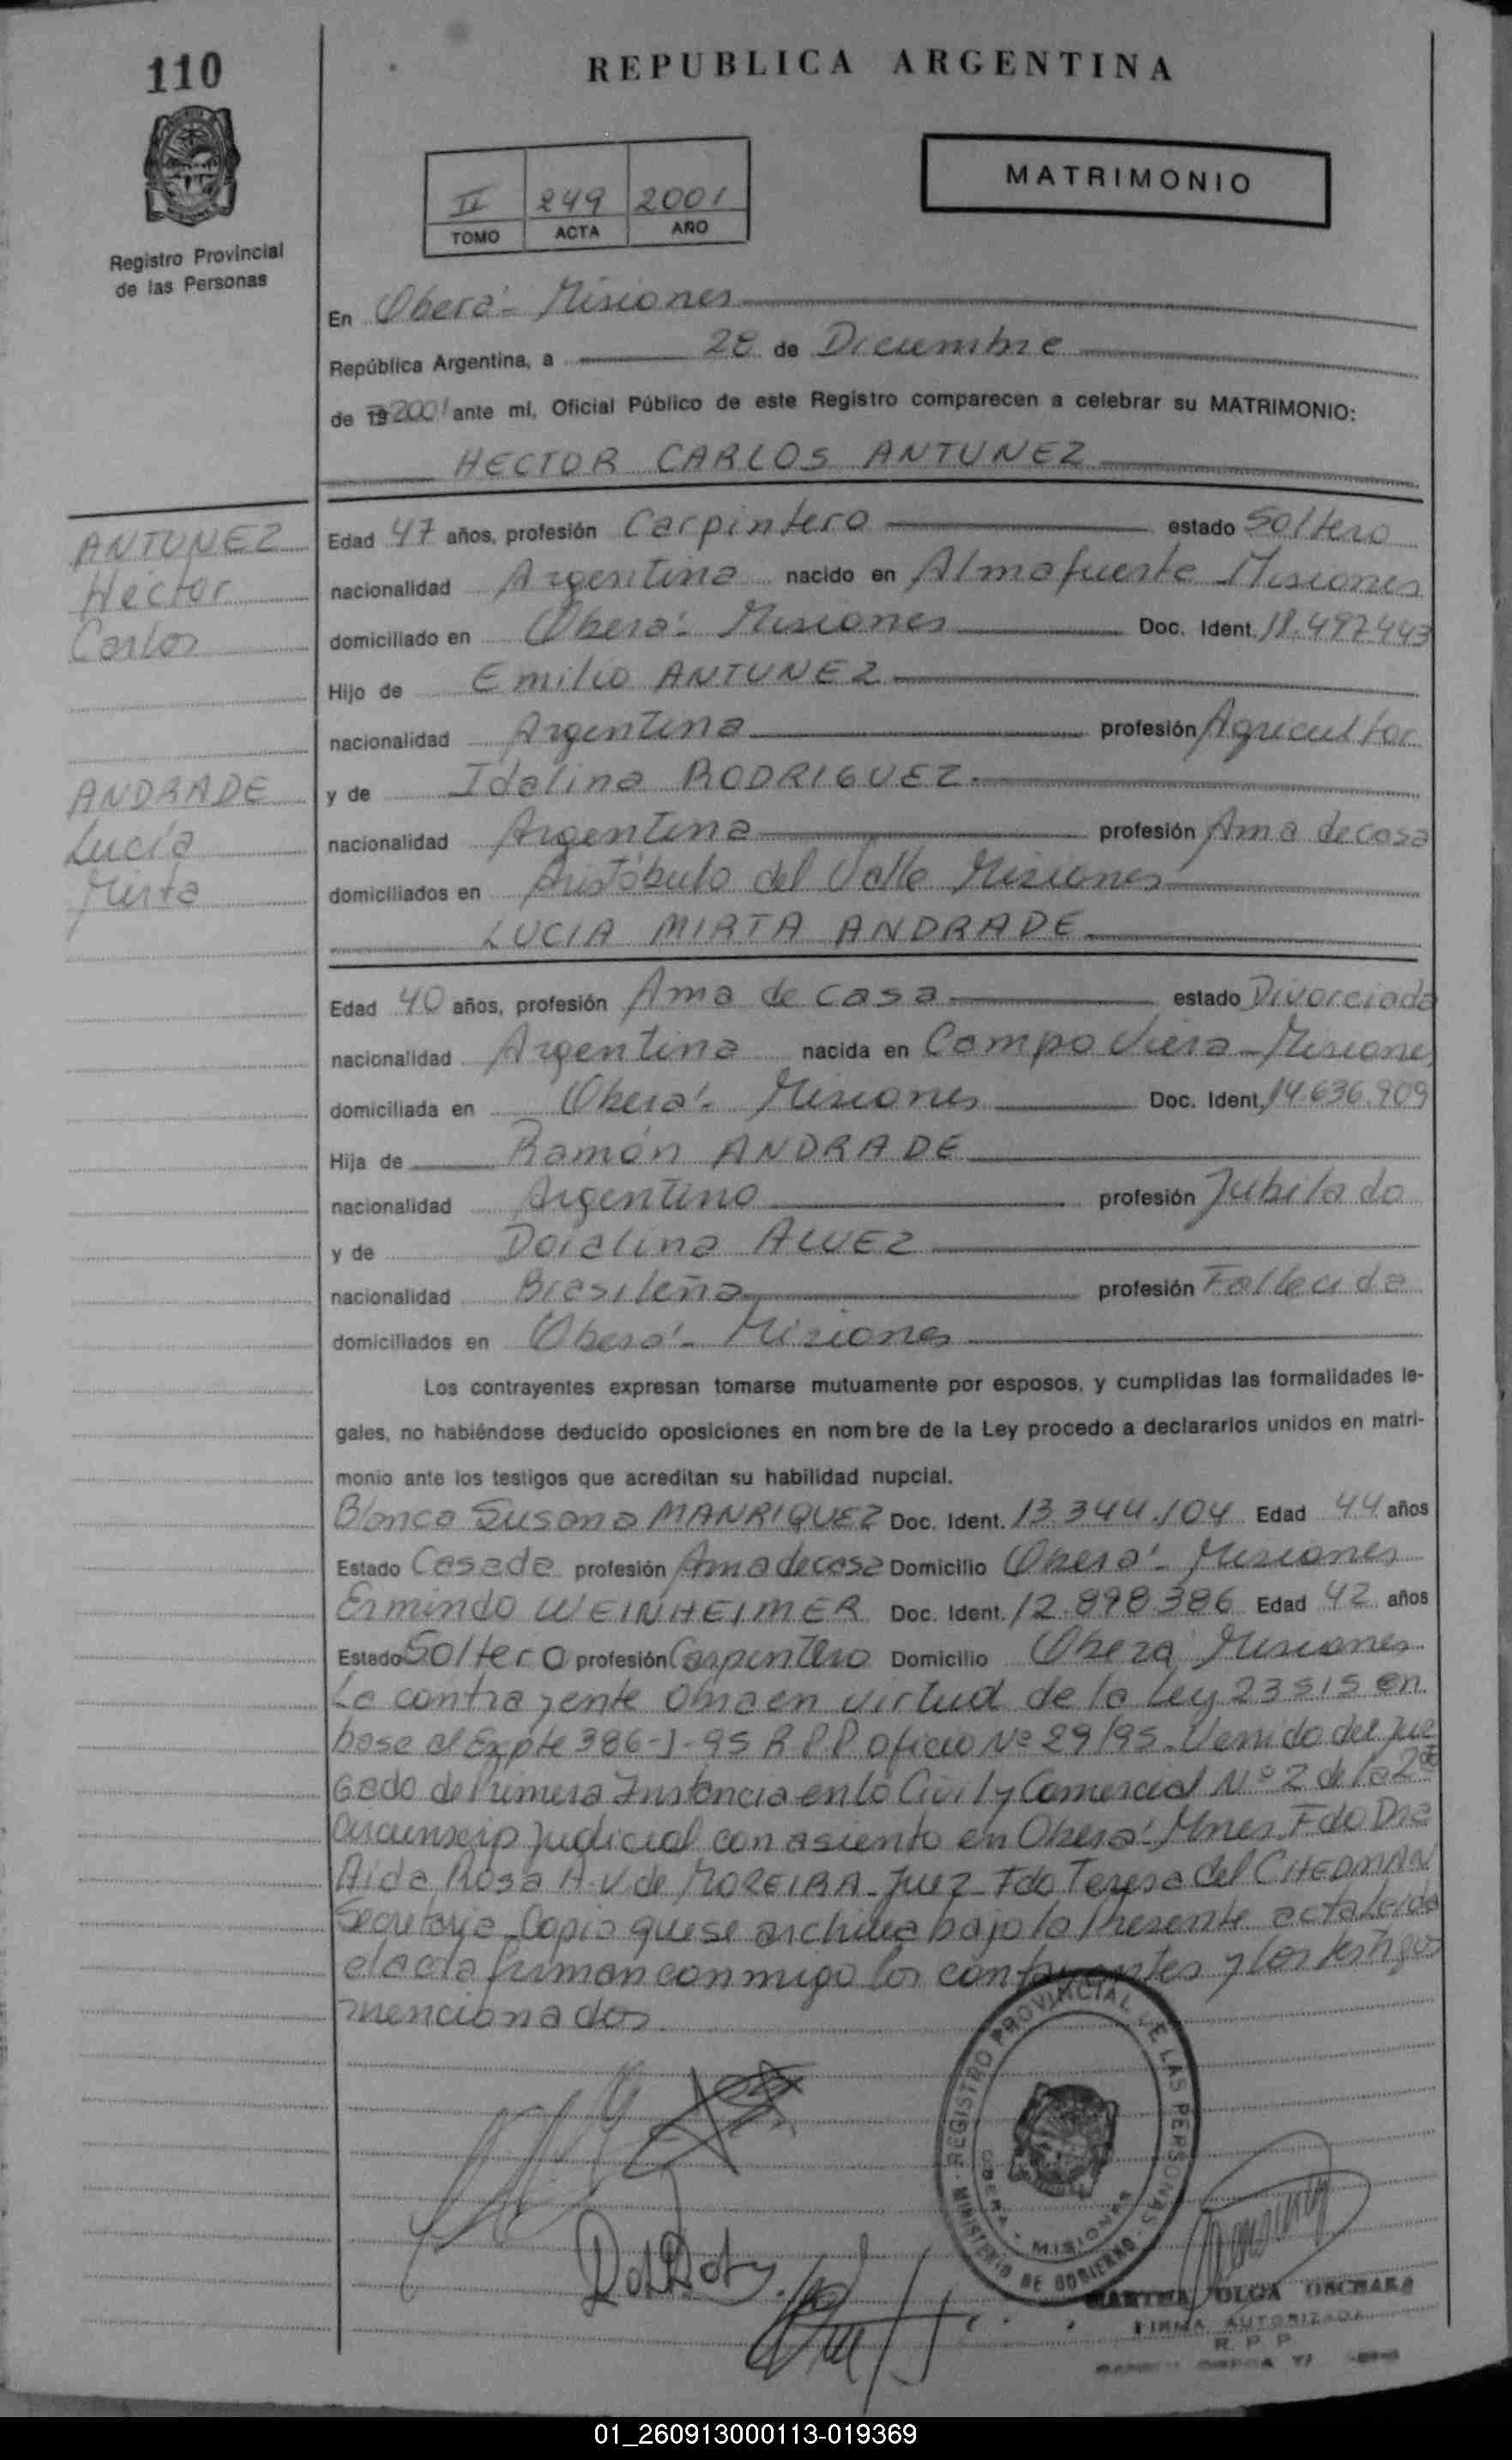 110
REPUBLICA ARGENTINA
MATRIMONIO
II 249 2001
TOMO ACTA AÑO
Registro Provincial
de las Personas
En Oberá - Misiones
República Argentina, a 28 de Diciembre
de 19 2001 ante mí, Oficial Público de este Registro comparecen a celebrar su MATRIMONIO:
HECTOR CARLOS ANTUNEZ
ANTUNEZ
Héctor
Carlos
Edad 47 años, profesión Carpintero estado Soltero
nacionalidad Argentina nacido en Almafuerte Misiones
domiciliado en Oberá - Misiones Doc. Ident. 11.497443
Hijo de Emilio ANTUNEZ
nacionalidad Argentina profesión Agricultor
ANDRADE
Lucía
Mirta
y de Idalina RODRIGUEZ
nacionalidad Argentina profesión Ama de casa
domiciliados en Aristóbulo del Valle Misiones
LUCIA MIRTA ANDRADE
Edad 40 años, profesión Ama de casa estado Divorciada
nacionalidad Argentina nacida en Campo Viera - Misiones
domiciliada en Oberá - Misiones Doc. Ident. 14.636.909
Hija de Ramón ANDRADE
nacionalidad Argentino profesión Jubilado
y de Doralina ALVEZ
nacionalidad Brasileña profesión Fallecida
domiciliados en Oberá - Misiones
Los contrayentes expresan tomarse mutuamente por esposos, y cumplidas las formalidades le-
gales, no habiéndose deducido oposiciones en nombre de la Ley procedo a declararlos unidos en matri-
monio ante los testigos que acreditan su habilidad nupcial.
Blanca Susana MANRIQUEZ Doc. Ident. 13.344.104 Edad 44 años
Estado Casada profesión Ama de casa Domicilio Oberá - Misiones
Ermindo WEINHEIMER Doc. Ident. 12.898.386 Edad 42 años
Estado Soltero profesión Carpintero Domicilio Oberá Misiones
La contrayente obra en virtud de la Ley 23515 en
base al Expte 386-J-95 R.P.P. oficio Nº 29/95. Venido del Juz
gado de Primera Instancia en lo Civil y Comercial Nº 2 de la 2da
Circunscrip Judicial con asiento en Oberá Mnes. Fdo Dra
Aida Rosa A. V. de MOREIRA - Juez - Fdo Teresa del CHEDMAN
Secretaria - Copia que se archiva bajo la Presente acta Leída
el acta firman conmigo los contrayentes y los testigos
mencionados
REGISTRO PROVINCIAL DE LAS PERSONAS
OBERA - MISIONES
MINISTERIO DE GOBIERNO
MARTHA OLGA
FIRMA AUTORIZADA
R. P. P.
01_260913000113-019369